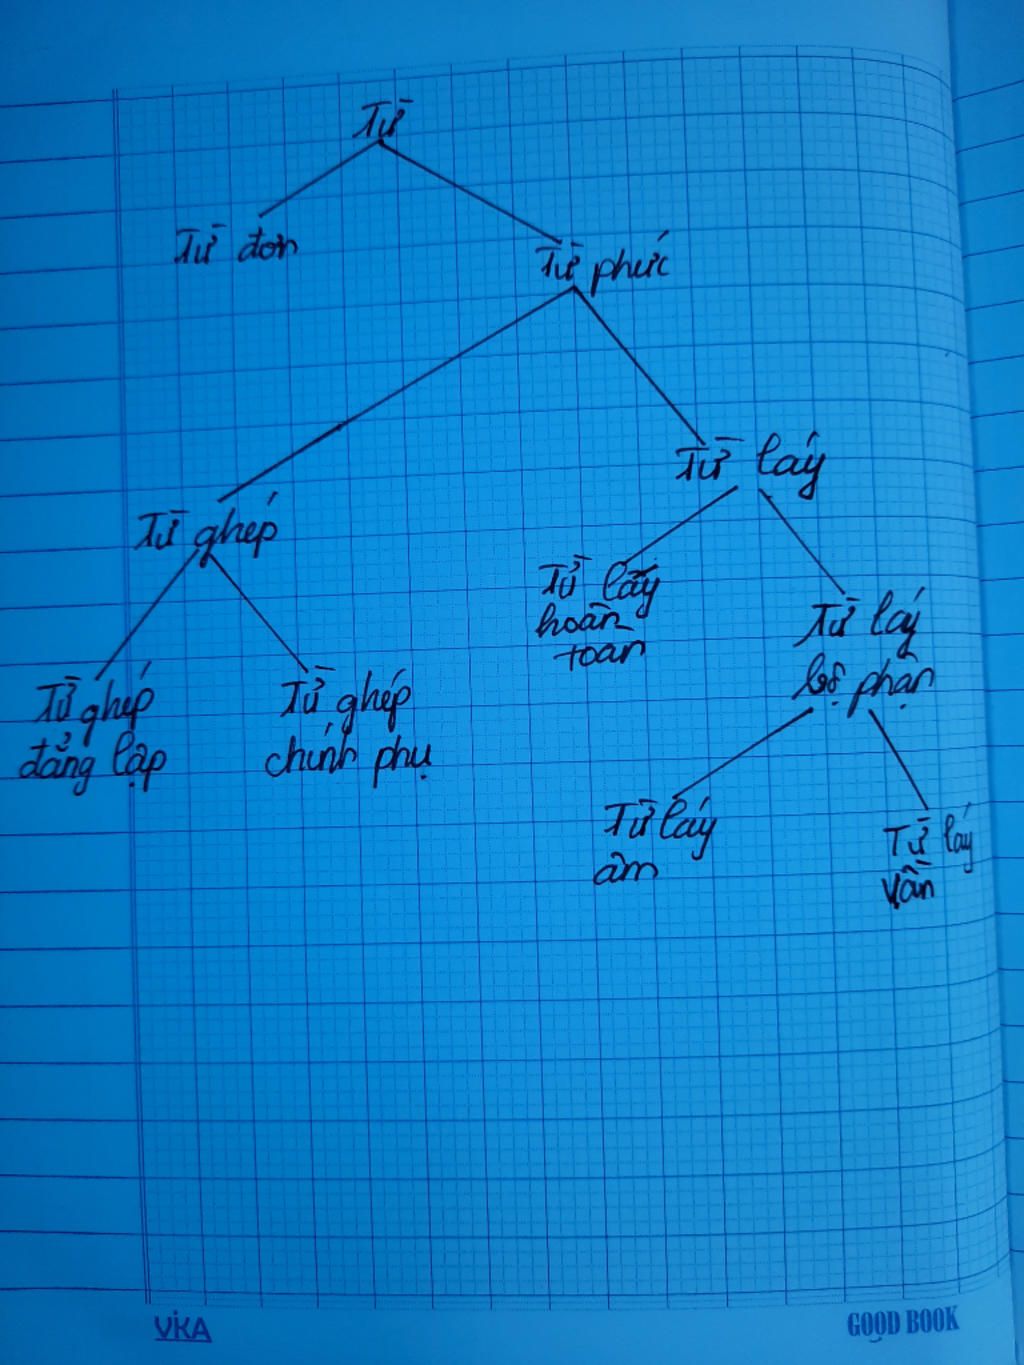 Từ
Từ đơn
Từ phức
Từ láy
Từ ghép
Từ láy
hoàn
toàn
Từ láy
bộ phận
Từ ghép
đẳng lập
Từ ghép
chính phụ
Từ láy
âm
Từ láy
vần
VIKA
GOOD BOOK